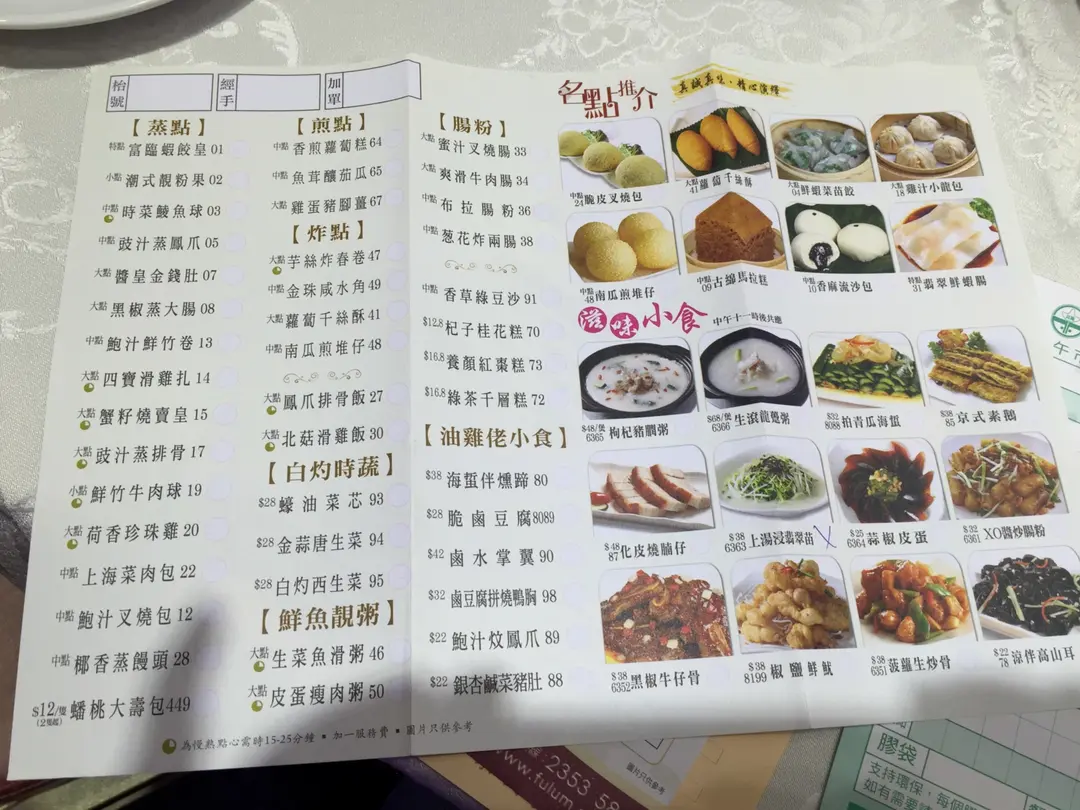 枱號
經手
加單
【蒸點】
特點 富臨蝦餃皇 01
小點 潮式靚粉果 02
中點 時菜鯪魚球 03
中點 豉汁蒸鳳爪 05
大點 醬皇金錢肚 07
大點 黑椒蒸大腸 08
中點 鮑汁鮮竹卷 13
大點 四寶滑雞扎 14
大點 蟹籽燒賣皇 15
大點 豉汁蒸排骨 17
小點 鮮竹牛肉球 19
大點 荷香珍珠雞 20
中點 上海菜肉包 22
中點 鮑汁叉燒包 12
中點 椰香蒸饅頭 28
$12/隻 (2隻起) 蟠桃大壽包 449
【煎點】
中點 香煎蘿蔔糕 64
中點 魚茸釀茄瓜 65
大點 雞蛋豬腳薑 67
【炸點】
大點 芋絲炸春卷 47
中點 金珠咸水角 49
大點 蘿蔔千絲酥 41
中點 南瓜煎堆仔 48
大點 鳳爪排骨飯 27
大點 北菇滑雞飯 30
【白灼時蔬】
$28 蠔油菜芯 93
$28 金蒜唐生菜 94
$28 白灼西生菜 95
【鮮魚靚粥】
大點 生菜魚滑粥 46
大點 皮蛋瘦肉粥 50
【腸粉】
大點 蜜汁叉燒腸 33
大點 爽滑牛肉腸 34
中點 布拉腸粉 36
中點 葱花炸兩腸 38
中點 香草綠豆沙 91
$12.8 杞子桂花糕 70
$16.8 養顏紅棗糕 73
$16.8 綠茶千層糕 72
【油雞佬小食】
$38 海蜇伴燻蹄 80
$28 脆鹵豆腐 8089
$42 鹵水掌翼 90
$32 鹵豆腐拼燒鴨胸 98
$22 鮑汁炆鳳爪 89
$22 銀杏鹹菜豬肚 88
為慢熱點心需時15-25分種 ▪ 加一服務費 ▪ 圖片只供參考
名點推介
真誠真生·精心演繹
中點 24 脆皮叉燒包
大點 41 蘿蔔千絲酥
大點 04 鮮蝦菜苗餃
大點 18 雞汁小籠包
中點 48 南瓜煎堆仔
中點 09 古綿馬拉糕
中點 10 香麻流沙包
特點 31 翡翠鮮蝦腸
滋味小食 中午十一時後供應
$48/煲 6365 枸杞豬膶粥
$68/煲 6366 生滾龍躉粥
$32 8088 拍青瓜海蜇
$38 85 京式素鵝
$48 87 化皮燒腩仔
$38 6363 上湯浸翡翠苗
$25 6364 蒜椒皮蛋
$32 6361 XO醬炒腸粉
$38 6352 黑椒牛仔骨
$38 8199 椒鹽鮮魷
$38 6351 菠蘿生炒骨
$22 78 涼伴高山耳
2353 58
www.fulum
圖片只供參考
午市
膠袋
支持環保，每個
如有需要